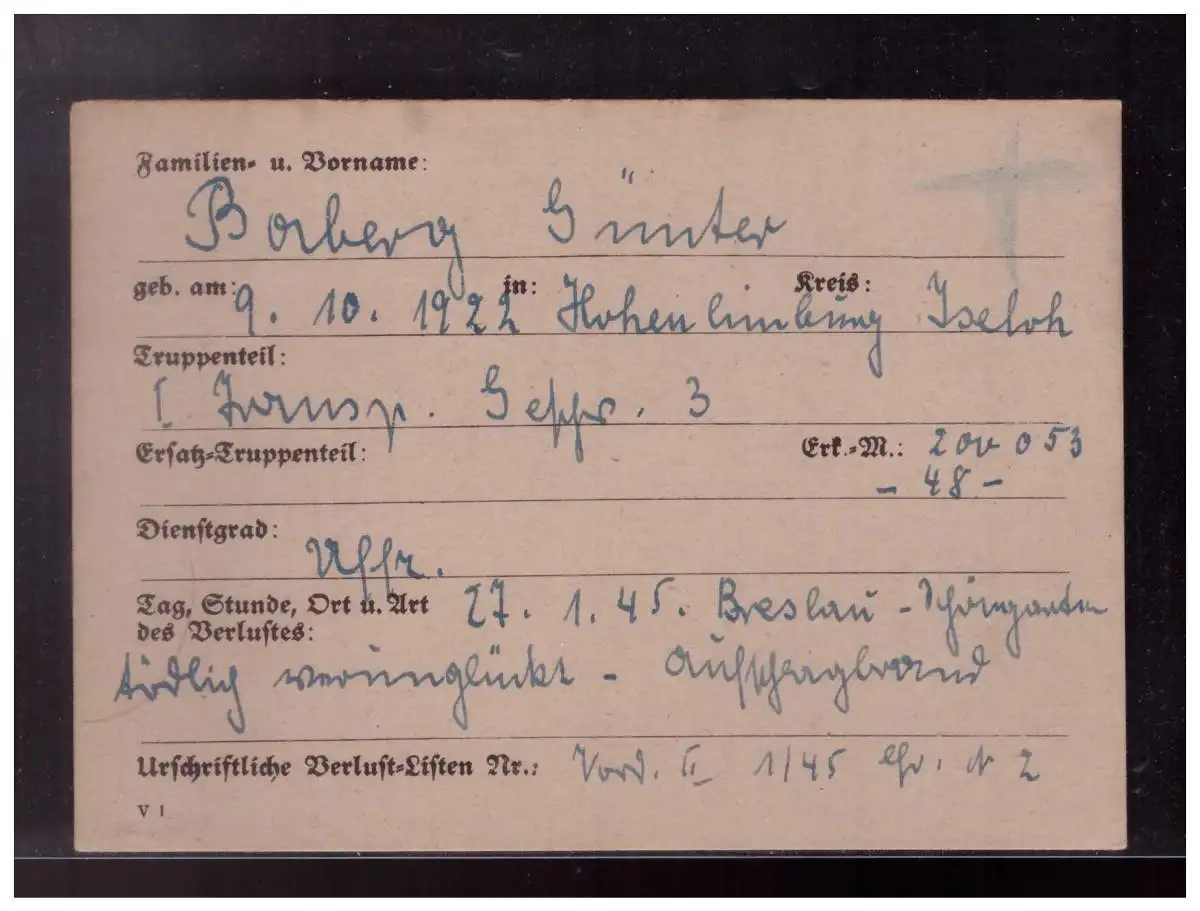 Familien- u. Vorname:
Borberg Günter
geb. am: 9. 10. 1922 in: Hohenlimburg Kreis: Iseloh
Truppenteil:
I. Transp. Geschw. 3
Ersatz-Truppenteil: Erk.-M.: 200 053
- 48 -
Dienstgrad: Uffz.
Tag, Stunde, Ort u. Art 27. 1. 45. Breslau - Schöngarten
des Verlustes:
tödlich verunglückt - Aufschlagbrand
Urschriftliche Verlust-Listen Nr.: Vord. II 1/45 2
V 1